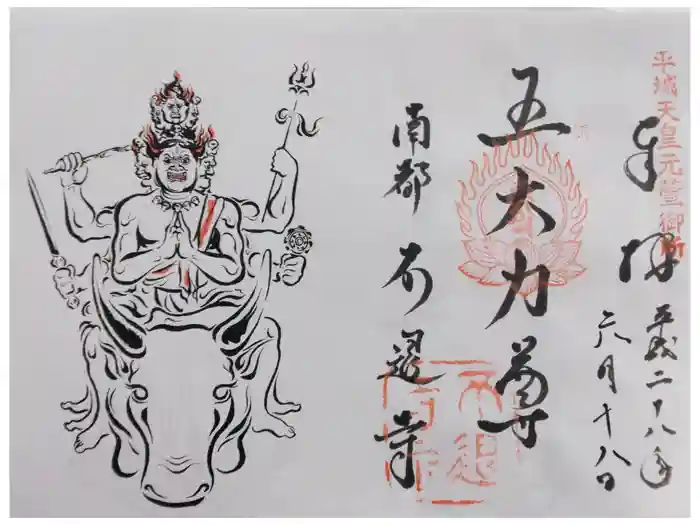 平城天皇元萱御所
奉拝
平成二十八年
六月十八日
五大力尊
南都 不退寺
不退